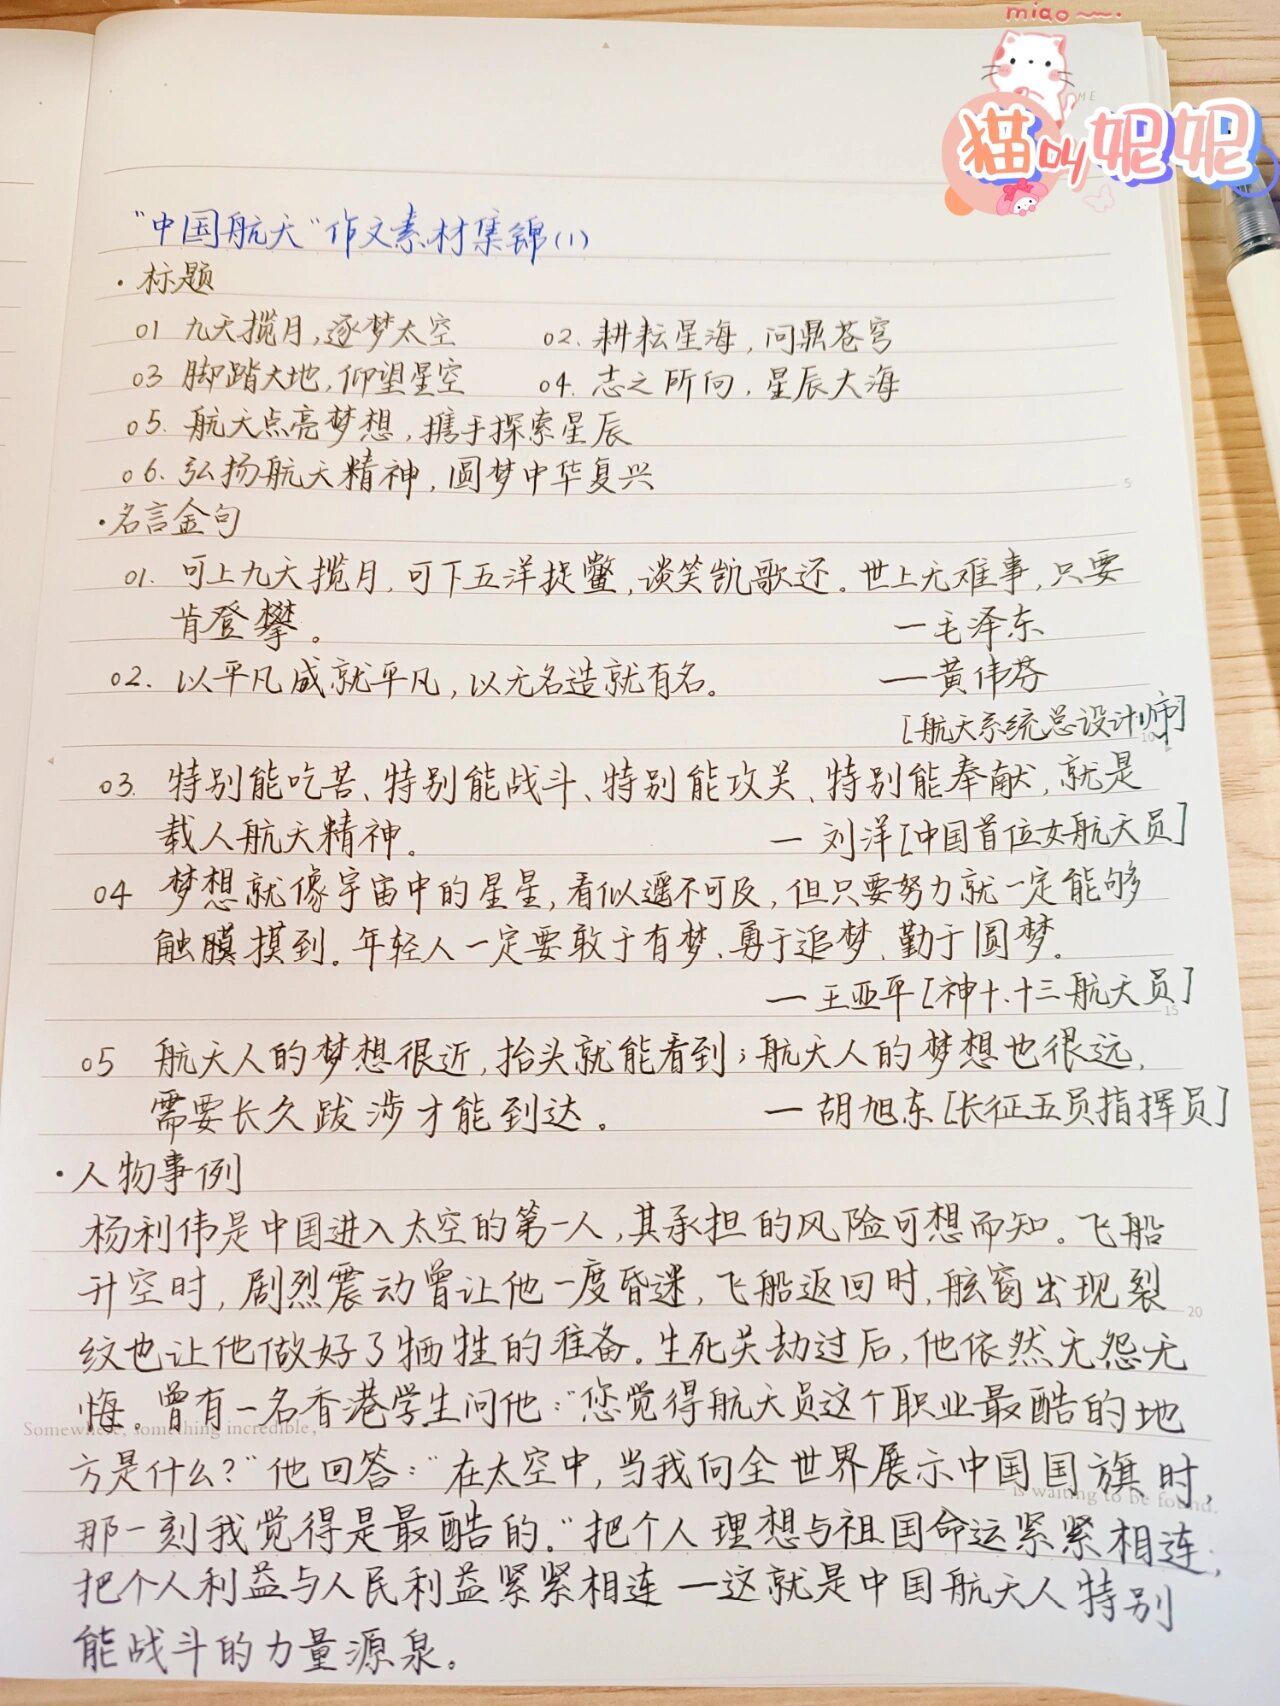 miao~~.
ME
猫叫妮妮
"中国航天"作文素材集锦(1)
·标题
01 九天揽月,逐梦太空 02. 耕耘星海,问鼎苍穹
03 脚踏大地,仰望星空 04. 志之所向,星辰大海
05. 航天点亮梦想,携手探索星辰
06. 弘扬航天精神,圆梦中华复兴
5
·名言金句
01. 可上九天揽月,可下五洋捉鳖,谈笑凯歌还。世上无难事,只要
肯登攀。 —毛泽东
02. 以平凡成就平凡,以无名造就有名。 —黄伟芬
[航天系统总设计师]
10
03. 特别能吃苦、特别能战斗、特别能攻关、特别能奉献,就是
载人航天精神。 — 刘洋[中国首位女航天员]
04 梦想就像宇宙中的星星,看似遥不可及,但只要努力就一定能够
触膜摸到。年轻人一定要敢于有梦、勇于追梦、勤于圆梦。
—王亚平[神十、十三航天员]
15
05 航天人的梦想很近,抬头就能看到;航天人的梦想也很远,
需要长久跋涉才能到达。 —胡旭东[长征五员指挥员]
·人物事例
杨利伟是中国进入太空的第一人,其承担的风险可想而知。飞船
升空时,剧烈震动曾让他一度昏迷,飞船返回时,舷窗出现裂
20
纹也让他做好了牺牲的准备。生死关劫过后,他依然无怨无
悔。曾有一名香港学生问他:"您觉得航天员这个职业最酷的地
Somewhere, something incredible,
方是什么?"他回答:"在太空中,当我向全世界展示中国国旗时,
is waiting to be found.
那一刻我觉得是最酷的。"把个人理想与祖国命运紧紧相连,
把个人利益与人民利益紧紧相连—这就是中国航天人特别
能战斗的力量源泉。